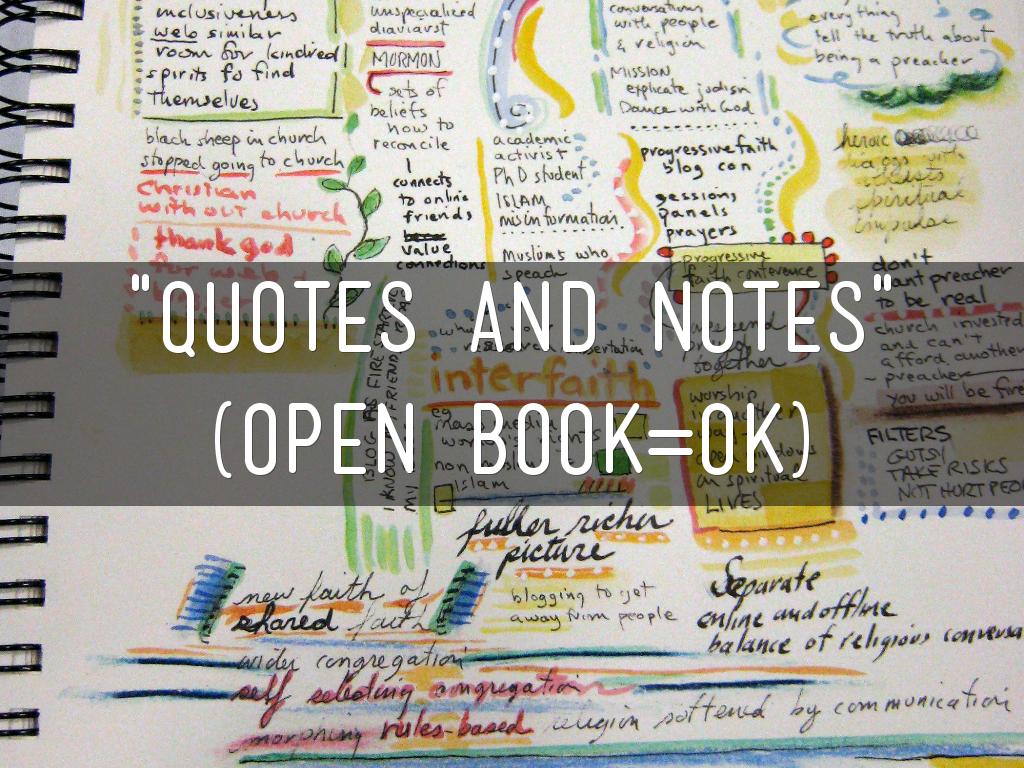 inclusiveness
welo similar
room for kindred
spirits to find
Themselves
black sheep in church
stopped going to church
Christian
with out church
thank god
for web
unspecialized
diaviarst
MORMON
sets of
beliefs
how to
reconcile
I
connects
to online
friends
value
connections
academic
activist
PhD student
ISLAM
misinformation
Muslims who
speack
conversations
with people
& religion
MISSION
explicate judism
Dance with God
progressive faith
blog con
sessions
panels
prayers
progressive
faith conference
together
everything
tell the truth about
being a preacher
heroic
spiritual
impulse
don't
want preacher
to be real
church invested
and can't
afford another
preacher
you will be fire
FILTERS
GUTSY
TAKE RISKS
NOT HURT PEO
"QUOTES AND NOTES"
(OPEN BOOK=OK)
interfaith
eg
mass media
non
Islam
worship
on spiritual
LIVES
fuller richer
picture
new faith of
shared faith
blogging to get
away from people
Separate
online and offline
balance of religious conversa
wider congregation
self selecting congregation
morphing rules-based religion softened by communication